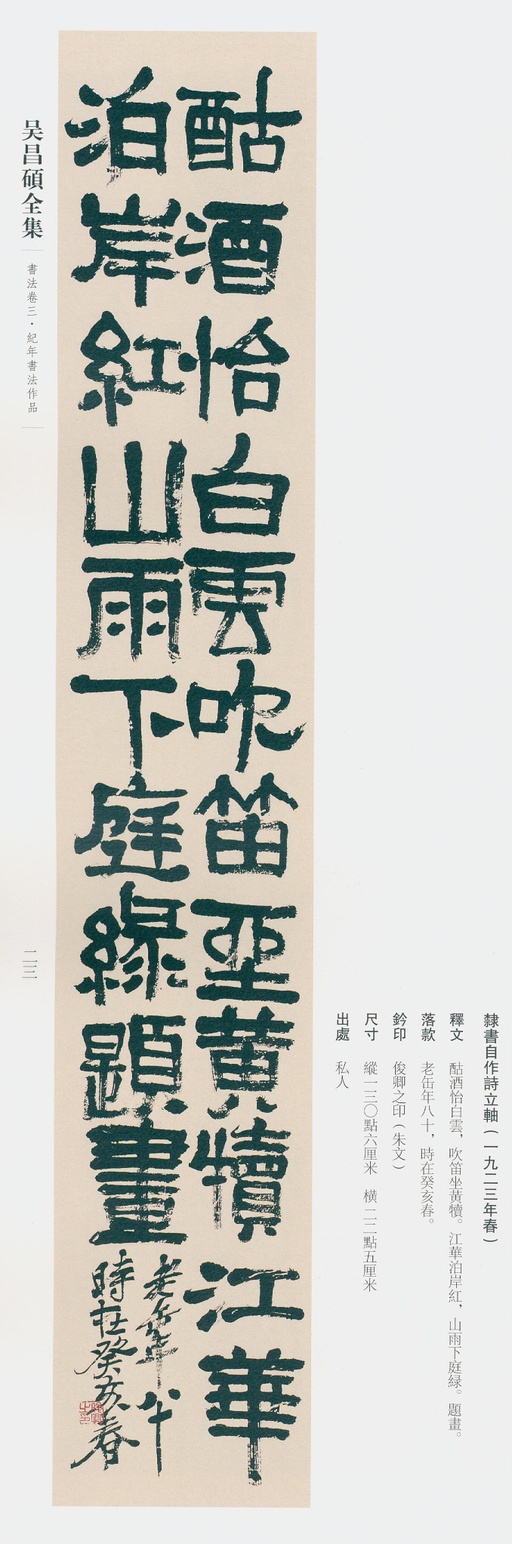 隸書自作詩立軸（一九二三年春）
釋文 酤酒怡白雲，吹笛坐黃犢。江華泊岸紅，山雨下庭緑。題畫。
落款 老缶年八十，時在癸亥春。
鈐印 俊卿之印（朱文）
尺寸 縱一三〇點六厘米 橫二二點五厘米
出處 私人
酤酒怡白雲吹笛坐黃犢江華
泊岸紅山雨下庭緑題畫
老缶年八十
時在癸亥春
吴昌碩全集
書法卷三·紀年書法作品
二三二